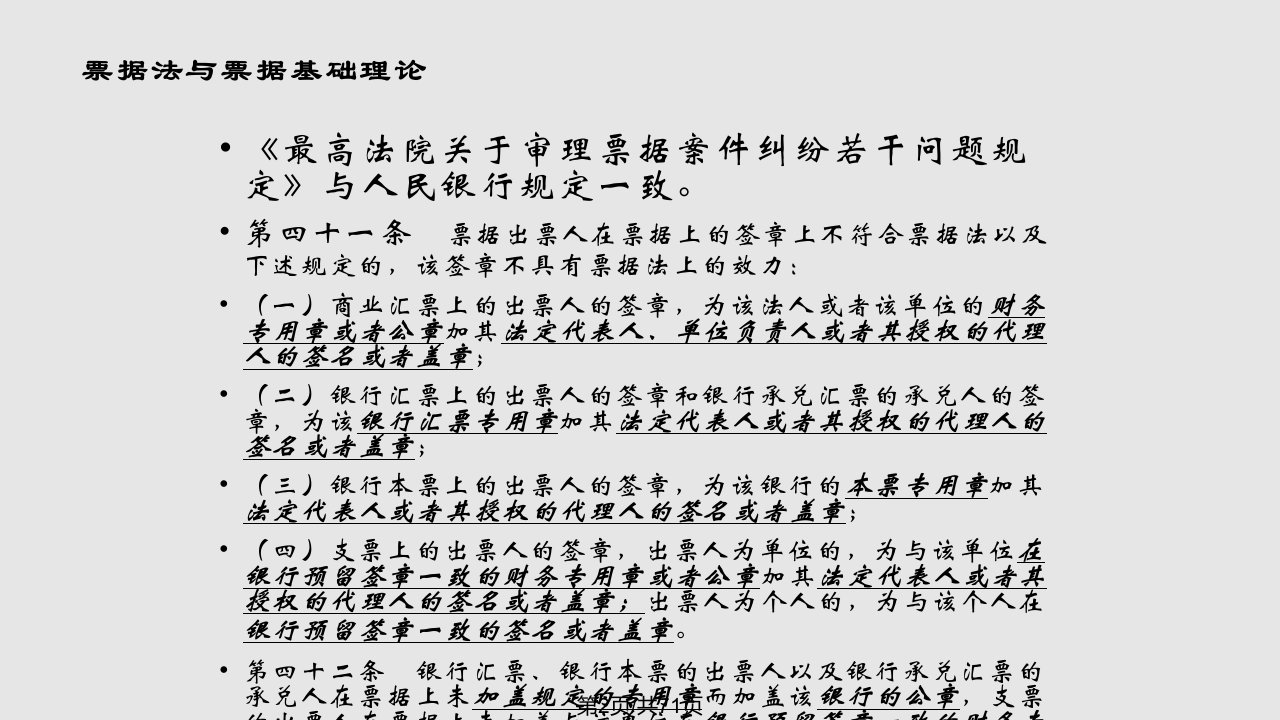 票据法与票据基础理论
• 《最高法院关于审理票据案件纠纷若干问题规
定》与人民银行规定一致。
• 第四十一条 票据出票人在票据上的签章上不符合票据法以及
下述规定的，该签章不具有票据法上的效力：
• （一）商业汇票上的出票人的签章，为该法人或者该单位的财务
专用章或者公章加其法定代表人、单位负责人或者其授权的代理
人的签名或者盖章；
• （二）银行汇票上的出票人的签章和银行承兑汇票的承兑人的签
章，为该银行汇票专用章加其法定代表人或者其授权的代理人的
签名或者盖章；
• （三）银行本票上的出票人的签章，为该银行的本票专用章加其
法定代表人或者其授权的代理人的签名或者盖章；
• （四）支票上的出票人的签章，出票人为单位的，为与该单位在
银行预留签章一致的财务专用章或者公章加其法定代表人或者其
授权的代理人的签名或者盖章；出票人为个人的，为与该个人在
银行预留签章一致的签名或者盖章。
• 第四十二条 银行汇票、银行本票的出票人以及银行承兑汇票的
承兑人在票据上未加盖规定的专用章而加盖该银行的公章，支票
第2页/共71页